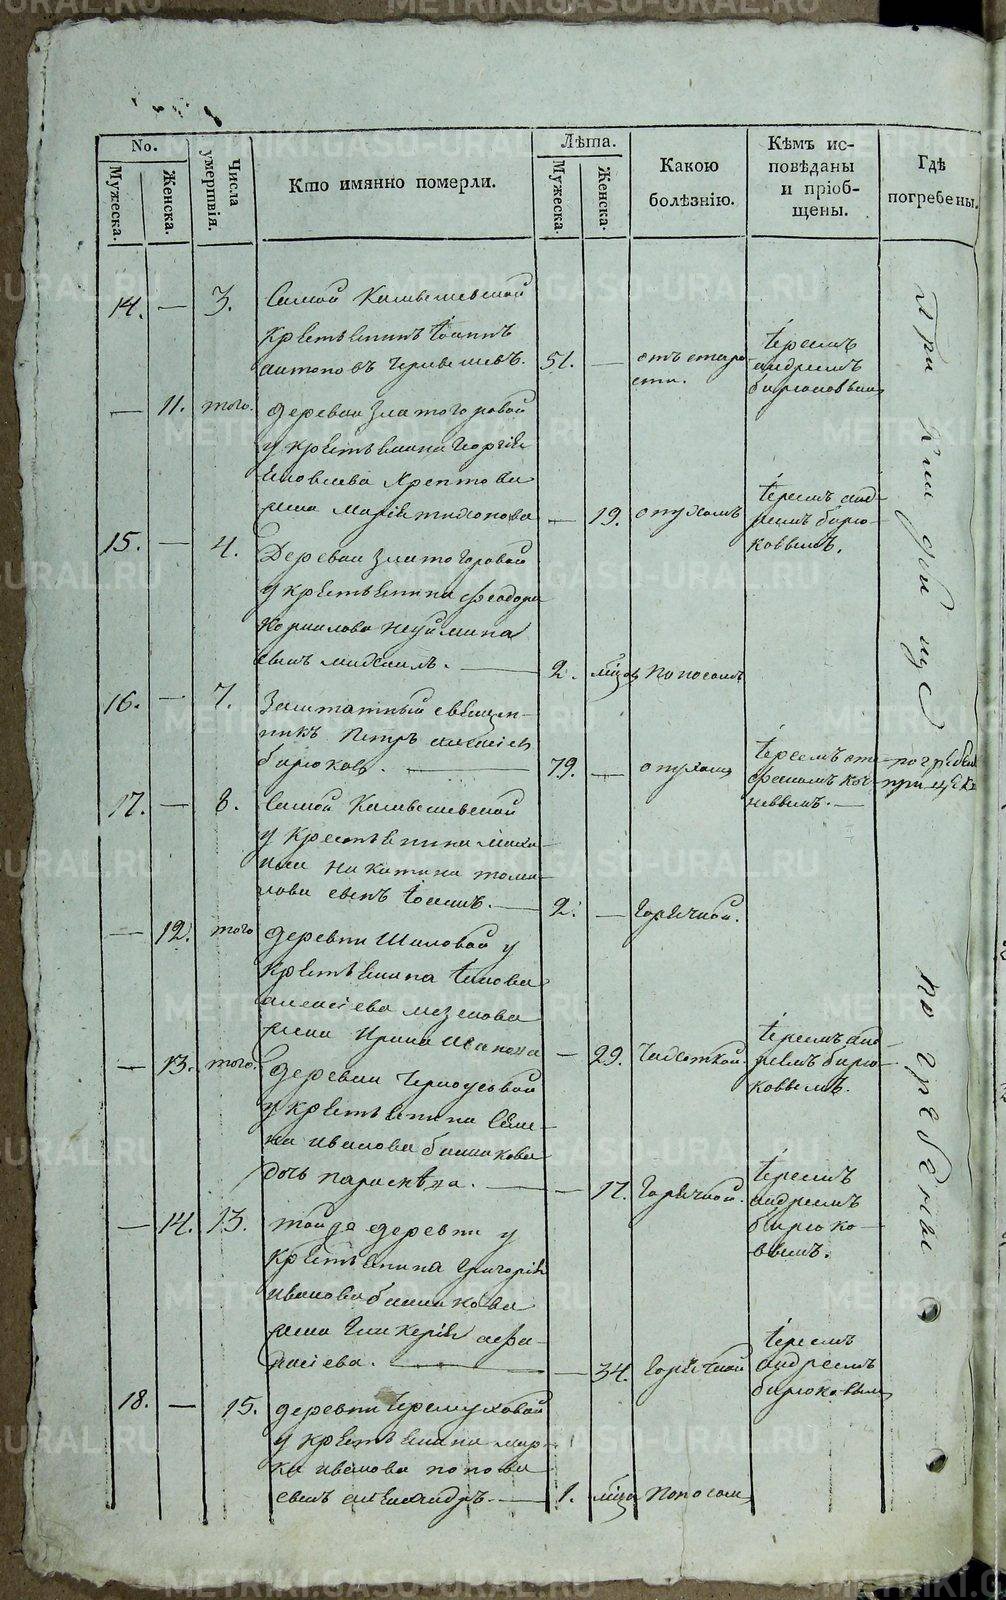 No.
Мужеска.
Женска.
Числа умертвія.
Кто имянно померли.
Лѣта.
Мужеска.
Женска.
Какою
болѣзнію.
Кѣмъ ис-
повѣданы
и пріоб-
щены.
Гдѣ
погребены.
14. — 3. Самой Камышевской
крестьянинъ Іоаннъ
антоновъ 51. — отъ старо-
сти. Іереемъ
андреемъ
бирюковымъ
— 11. того. деревни Златогоровой
у крестьянина Георгія
Яковлева
жена Марія тихонова — 19. опухолью Іереемъ анд-
реемъ бирю-
ковымъ.
15. — 4. Деревни Златогоровой
у крестьянина Феодора
Корнилова Неуймина
сынъ михаилъ. — 2. мѣсяц поносомъ
16. — 7. Заштатный священ-
никъ Петръ алексіев
бирюковъ. — 79. — опухолью Іереемъ
погребен
при церкв
17. — 8. Самой Камышевской
у крестьянина
никитина
сынъ Іоаннъ. — 2. — Горячкой.
— 12. того деревни Шиловой у
крестьянина Іакова
алексіева мезенова
жена Ирина Иванова — 29. Чахоткой. Іереемъ анд-
реемъ бирю-
ковымъ.
— 13. того. деревни Черноусовой
у крестьянина Семе-
на иванова башкова
дочь параскева. — — 17. Горячкой. Іереемъ
андреемъ
бирюко-
вымъ.
— 14. 13. той де деревни у
крестьянина Григорія
иванова
жена Гликерія афа-
насіева. — — 34. Горячкой Іереемъ
андреемъ
бирюковымъ
18. — 15. деревни Черемуховой
у крестьянина мар-
ка иванова попова
сынъ александръ. — 1. мѣсяц Поносом
При погребены
METRIKI.GASO-URAL.RU